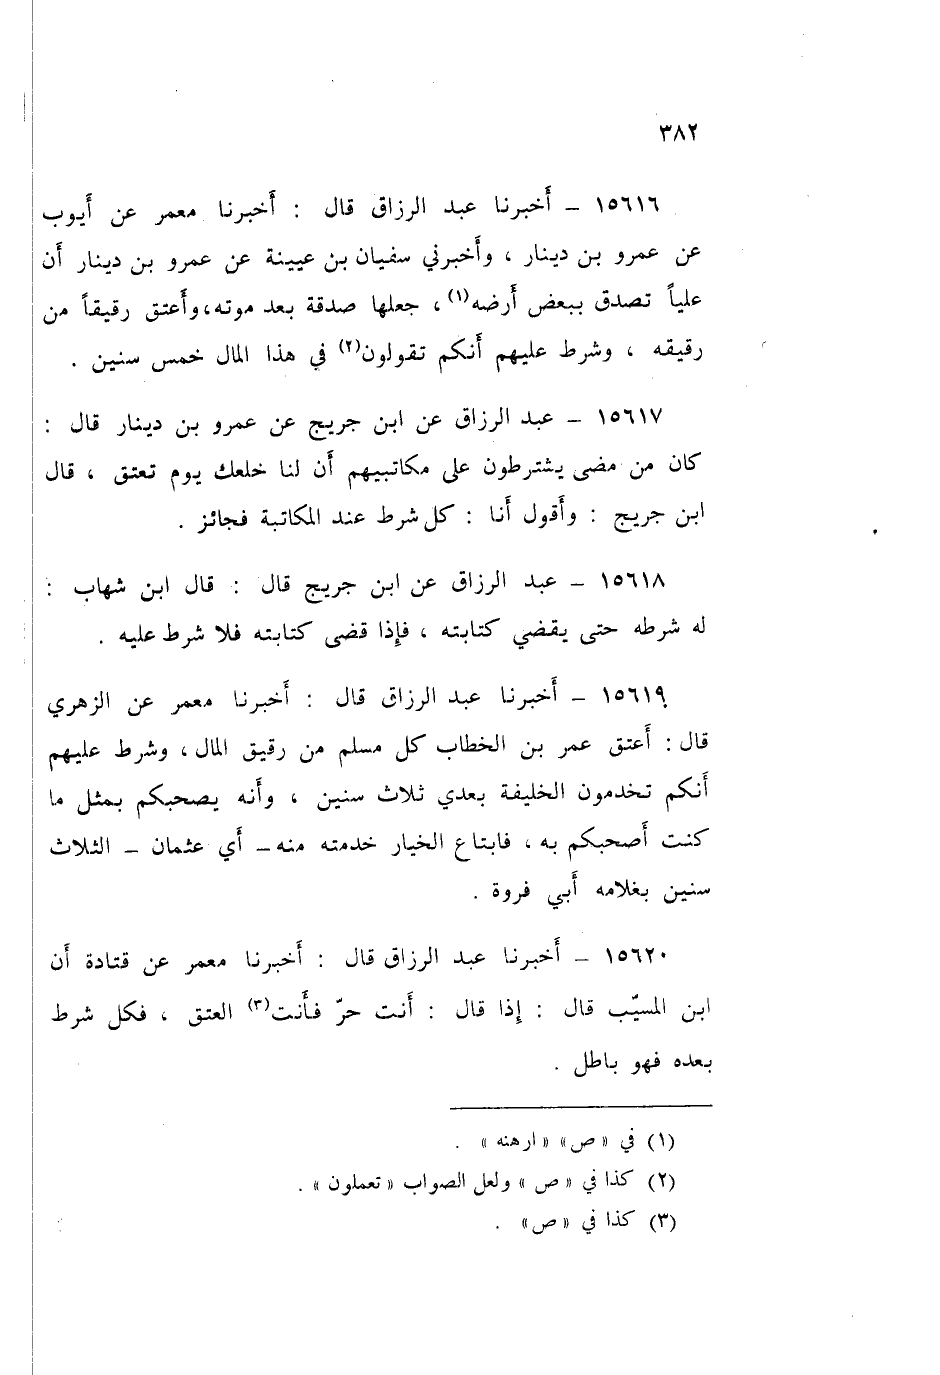 ٣٨٢
١٥٦١٦ – أَخبرنا عبد الرزاق قال : أَخبرنا معمر عن أَيوب
عن عمرو بن دينار ، وأَخبرني سفيان بن عيينة عن عمرو بن دينار أَن
علياً تصدق ببعض أَرضه(١) ، جعلها صدقة بعد موته، وأَعتق رقيقاً من
رقيقه ، وشرط عليهم أَنكم تقولون(٢) في هذا المال خمس سنين .
١٥٦١٧ – عبد الرزاق عن ابن جريج عن عمرو بن دينار قال :
كان من مضى يشترطون على مكاتبيهم أَن لنا خلعك يوم تعتق ، قال
ابن جريج : وأَقول أَنا : كل شرط عند المكاتبة فجائز .
١٥٦١٨ – عبد الرزاق عن ابن جريج قال : قال ابن شهاب :
له شرطه حتى يقضي كتابته ، فإِذا قضى كتابته فلا شرط عليه .
١٥٦١٩ – أَخبرنا عبد الرزاق قال : أَخبرنا معمر عن الزهري
قال : أَعتق عمر بن الخطاب كل مسلم من رقيق المال ، وشرط عليهم
أَنكم تخدمون الخليفة بعدي ثلاث سنين ، وأَنه يصحبكم بمثل ما
كنت أَصحبكم به ، فابتاع الخيار خدمته منه – أَي عثمان – الثلاث
سنين بغلامه أَبي فروة .
١٥٦٢٠ – أَخبرنا عبد الرزاق قال : أَخبرنا معمر عن قتادة أَن
ابن المسيّب قال : إِذا قال : أَنت حرّ فأَنت(٣) العتق ، فكل شرط
بعده فهو باطل .
(١) في «ص» «ارهنه» .
(٢) كذا في «ص» ولعل الصواب «تعملون» .
(٣) كذا في «ص» .